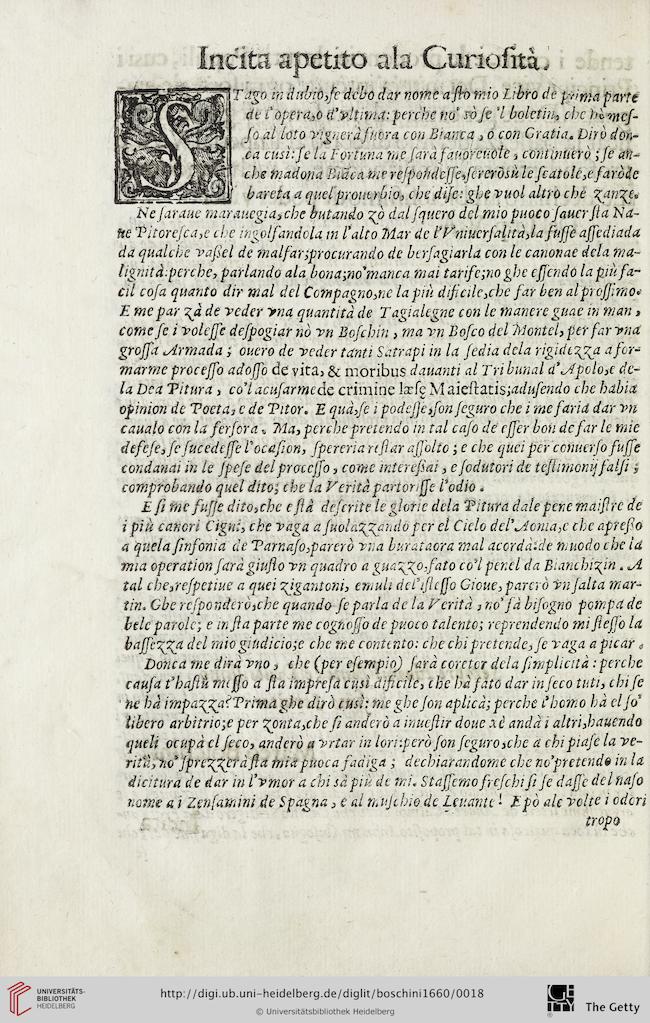 Incita apetito ala Curiosità.
STago in dubio, se debo dar nome a sto mio Libro de prima parte
de l'opera, o d'vltima: perche no' sò se 'l boletin, che hò mes-
so al loto vignerà fuora con Bianca, ò con Gratia. Dirò don-
ca cusì: se la Fortuna me sarà fauoreuole, continuerò; se an-
che madona Biãca me respondesse, sererò sù le scatole, e farò de
bareta a quel prouerbio, che dise: ghe vuol altro che zanze.
Ne saraue marauegia, che butando zò dal squero del mio puoco sauer sta Na-
ue Pitoresca, e che ingolfandola in l'alto Mar de l'Vniuersalità, la fusse assediada
da qualche vassel de malfar; procurando de bersagiarla con le canonae dela ma-
lignità: perche, parlando ala bona; no' manca mai tarife; no ghe essendo la più fa-
cil cosa quanto dir mal del Compagno, ne la più dificile, che far ben al prossimo.
E me par zà de veder vna quantità de Tagialegne con le manere guae in man,
come se i volesse despogiar nò vn Boschin, ma vn Bosco del Montel, per far vna
grossa Armada; ouero de veder tanti Satrapi in la sedia dela rigidezza a for-
marme processo adosso de vita, & moribus dauanti al Tribunal d'Apolo, e de-
la Dea Pitura, co'l acusarme de crimine læsę Maiestatis; adusendo che habia
opinion de Poeta, e de Pitor. E quà, se i podesse, son seguro che i me faria dar vn
caualo con la fersora. Ma, perche pretendo in tal caso de esser bon de far le mie
defese, se sucedesse l'ocasion, spereria restar assolto; e che quei per conuerso fusse
condanai in le spese del processo, come interessai, e sodutori de testimonij falsi;
comprobando quel dito; che la Verità partorisse l'odio.
E si me fusse dito, che e stà descrite le glorie dela Pitura dale pene maistre de
i più canori Cigni, che vaga a suolazzando per el Cielo del'Aonia, e che apresso
a quela sinfonia de Parnaso, parerò vna burataora mal acordà: de muodo che la
mia operation sarà giusto vn quadro a guazzo, fato co'l penel da Bianchizin. A
tal che, respetiue a quei zigantoni, emuli del'istesso Gioue, parerò vn salta mar-
tin. Ghe responderò, che quando se parla de la Verità, no' fà bisogno pompa de
bele parole; e in sta parte me cognosso de puoco talento; reprendendo mi stesso la
bassezza del mio giudicio; e che me contento: che chi pretende, se vaga a picar.
Donca me dirà vno, che (per esempio) sarà coretor dela simplicità: perche
causa t'hastù messo a sta impresa cusì dificile, che hà fato dar in seco tuti, chi se
ne hà impazzà? Prima ghe dirò cusì: me ghe son aplicà; perche l'homo hà el so'
libero arbitrio; e per zonta, che si anderò a inuestir doue xè andà i altri, hauendo
queli ocupà el seco, anderò a vrtar in lori: però son seguro, che a chi piase la ve-
rità, no' sprezzerà sta mia puoca fadiga; dechiarandome che no' pretendo in la
dicitura de dar in l'vmor a chi sà più de mi. Stassemo freschi si se dasse del naso
nome a i Zensamini de Spagna, e al muschio de Leuante! E pò ale volte i odori
tropo
UNIVERSITÄTS-
BIBLIOTHEK
HEIDELBERG
http://digi.ub.uni-heidelberg.de/diglit/boschini1660/0018
© Universitätsbibliothek Heidelberg
GETTY
The Getty